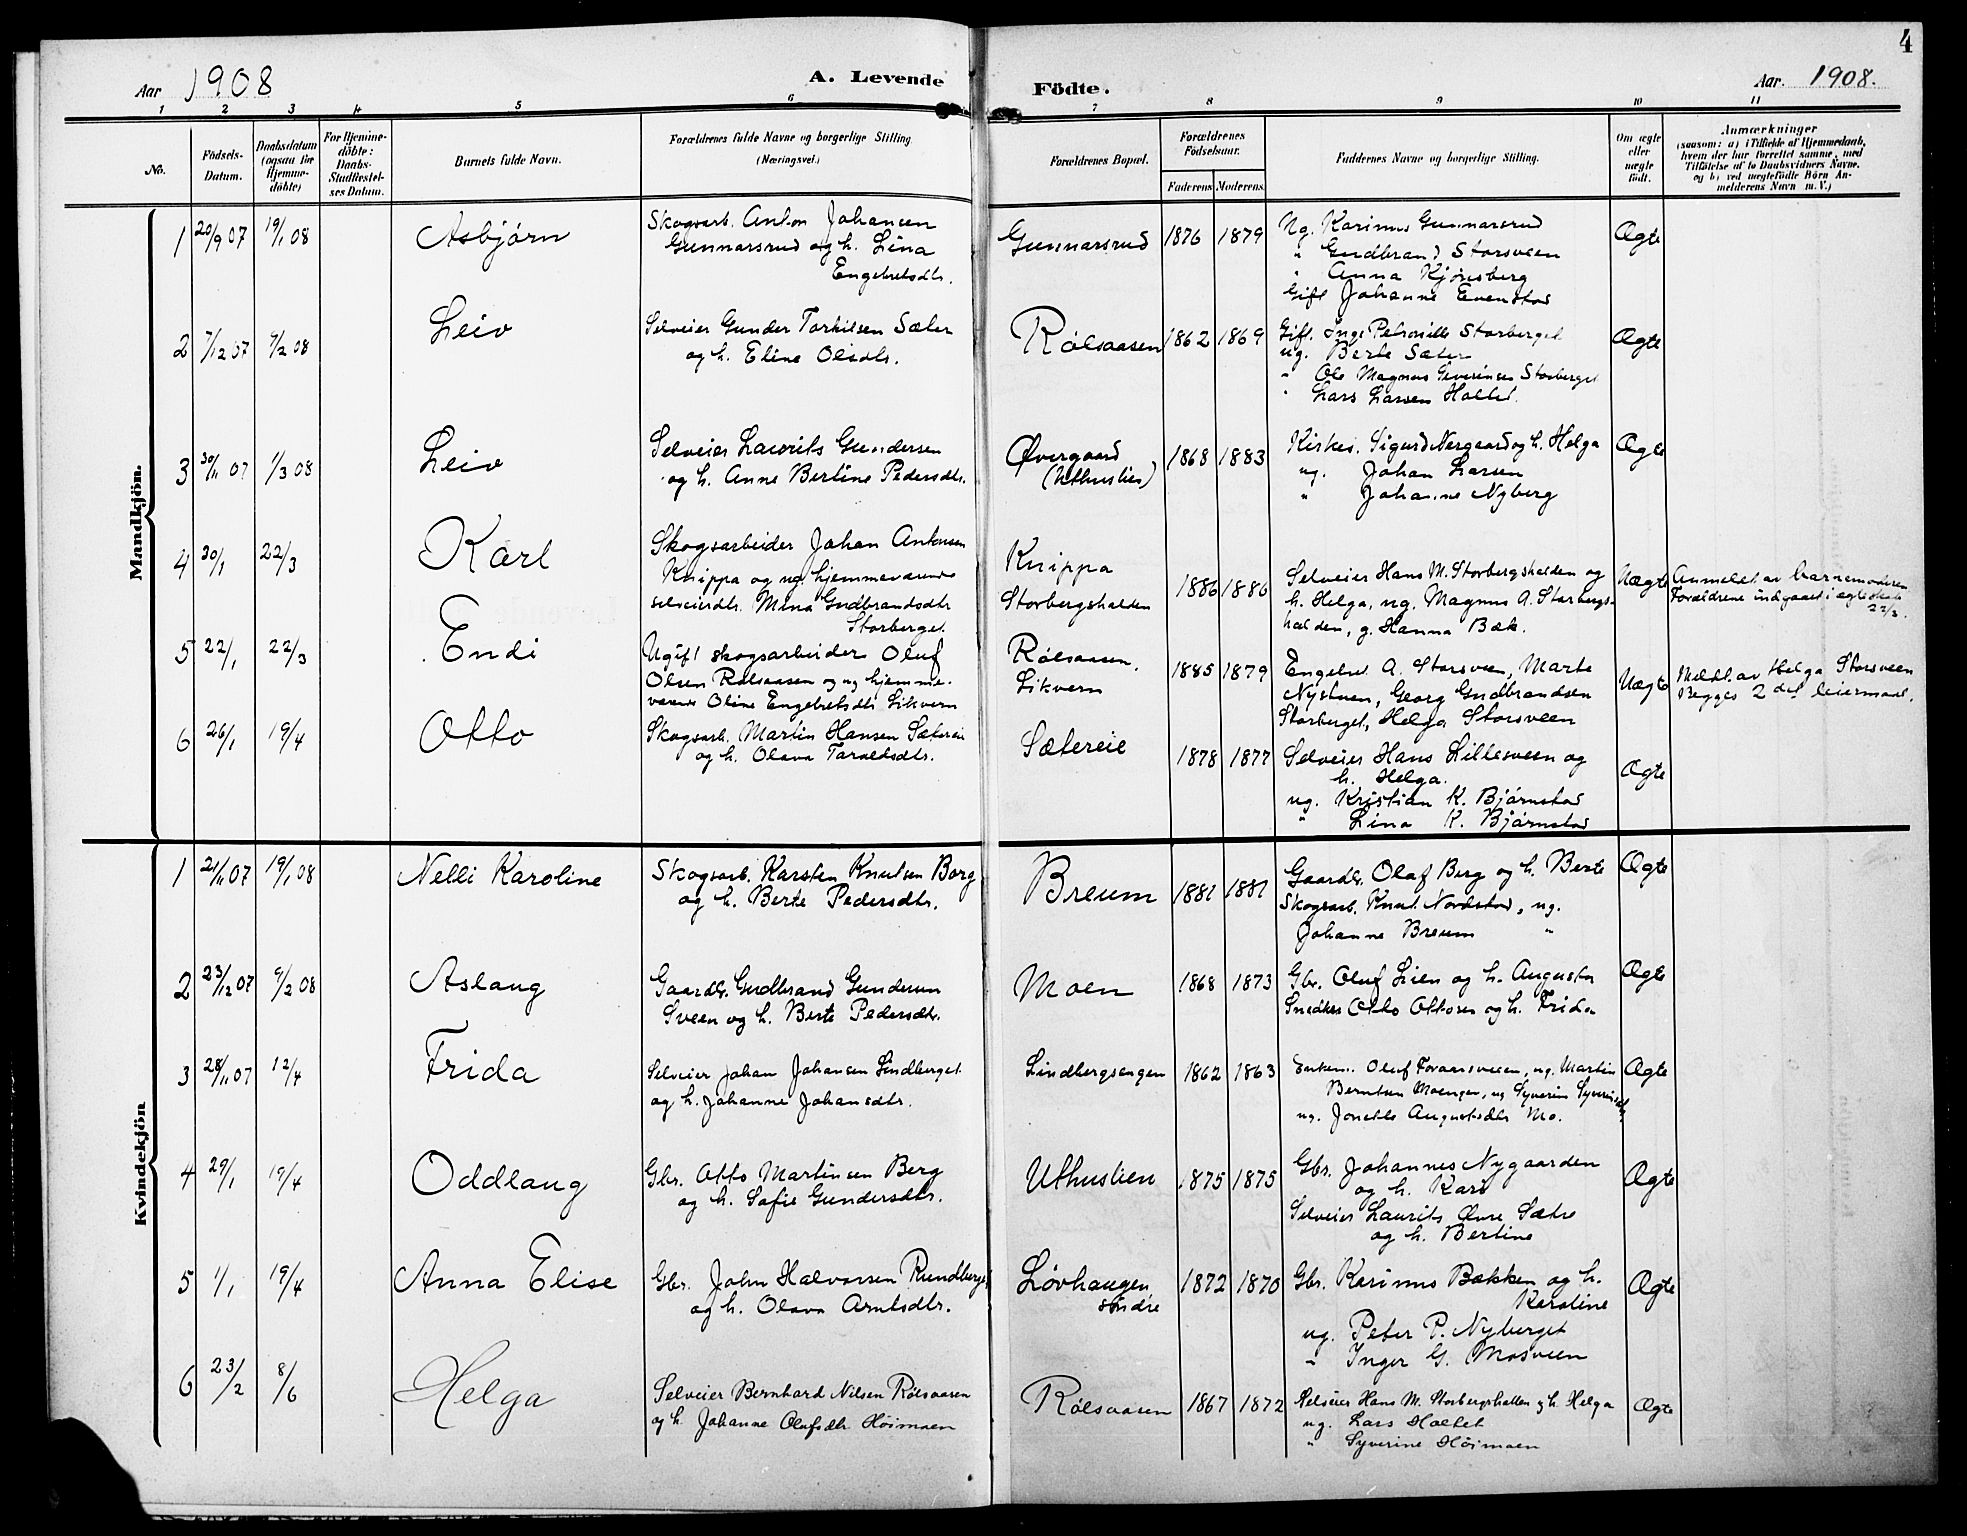 4
Aar 1908
A. Levende
Födte.
Aar. 1908.
1 2 3 4 5 6 7 8 9 10 11
No.
Födsels-
Datum.
Daabsdatum
(ogsaa for
Hjemme-
döbte)
For Hjemme-
döbte:
Daabs-
Stadfæstel-
ses Datum.
Barnets fulde Navn.
Forældrenes fulde Navne og borgerlige Stilling.
(Næringsvei.)
Forældrenes Bopæl.
Forældrenes
Födselsaar.
Faderens
Moderens.
Faddernes Navne og borgerlige Stilling.
Om ægte
eller
uægte
födt.
Anmærkninger
(saasom: a) i Tilfælde af Hjemmedaab,
hvem der har forrettet samme, med
Tilföielse af to Daabsvidners Navne,
og b) ved uægtefödte Börn An-
melderens Navn m. V.)
Mandkjön.
1 20/9 07 19/1 08 Asbjørn
Skogsarb. Anton Johansen
Gunnarsrud og h. Lina
Engebretsdtr.
Gunnarsrud 1876 1879
Ug. Karinus Gunnarsrud
" Gudbrand Storsveen
" Anna Kjønsberg
Gift Johanne Evenstad
Ægte
2 7/12 07 9/2 08 Leiv
Selveier Gunder Torkilsen Sæter
og h. Eline Olsdtr.
Rølsaasen 1862 1869
Gift. Inge Petronille Storberget
ug. Berte Sæter
" Ole Magnus Severinsen Storberget
" Lars Larsen Holtet.
Ægte
3 30/11 07 1/3 08 Leiv
Selveier Laurits Gundersen
og h. Anne Bertine Pedersdtr.
Øvergaard
(Uthuslien)
1868 1883
Kirkes. Sigurd Nergaard og h. Helga
ug. Johan Larsen
" Johanne Nyberg
Ægte
4 30/1 22/3 Karl
Skogsarbeider Johan Antonsen
Knippa og ug. hjemmeværende
selveierdtr. Mina Gudbrandsdtr
Storberget.
Knippa
Storbergshalden
1886 1886
Selveier Hans M. Storbergshalden og
h. Helga, ug. Magnus A. Storbergs-
halden, g. Hanna Bæk.
Uægte
Anmeldt av barnemoderen
Forældrene indgaaet i ægteskab
22/3.
5 22/1 22/3 Endi
Ugift skogsarbeider Oluf
Olsen Rølsaasen og ug hjemme-
værende Oline Engebretsdtr Likvern
Rølsaasen.
Likvern
1885 1879
Engebret A. Storsveen, Marte
Nystuen, Georg Gudbrandsen
Storberget, Helga Storsveen
Uægte
Meldt av Helga Storsveen
Begges 2det leiermaal.
6 26/1 19/4 Otto
Skogsarb. Martin Hansen Sætereie
og h. Olava Taraldsdtr.
Sætereie 1878 1877
Selveier Hans Lillesveen og
h. Helga.
ug. Kristian K. Bjørnstad
" Lina K. Bjørnstad
Ægte
Kvindekjön
1 21/11 07 19/1 08 Nelli Karoline
Skogsarb. Karsten Knutsen Borg
og h. Berte Pedersdtr.
Breum 1881 1881
Gaardbr. Olaf Berg og h. Berte
Skogsarb. Knut Nordstad, ug.
Johanne Breum "
Ægte
2 23/12 07 9/2 08 Aslaug
Gaardbr. Gudbrand Gundersen
Sveen og h. Berte Pedersdtr.
Moen 1868 1873
Gbr. Oluf Lien og h. Augusta
Snedker Otto Ottosen og h. Frida
Ægte
3 28/11 07 12/4 Frida
Selveier Johan Johansen Lindberget
og h. Johanne Johansdtr.
Lindbergsengen 1862 1863
Enkem. Oluf Foraarsveen, ug. Martin
Berntsen Moengen, ug Syverin Syverinsen,
ug. Jonette Augustsdtr Mo.
Ægte
4 29/1 19/4 Oddlaug
Gbr. Otto Martinsen Berg
og h. Sofie Gundersdtr.
Uthuslien 1875 1875
Gbr. Johannes Nygaarden
og h. Kari
Selveier Laurits Øvre Sætre
og h. Bertine
Ægte
5 1/1 19/4 Anna Elise
Gbr. John Halvorsen Rundberget
og h. Olava Arntsdtr.
Løvhaugen
søndre
1872 1870
Gbr. Karinus Bakken og h.
Karoline
ug. Peter P. Nyberget
" Inger G. Mosveen
Ægte
6 23/2 8/6 Helga
Selveier Bernhard Nilsen Rølsaasen
og h. Johanne Olafsdtr Høimoen
Rølsaasen 1867 1872
Selveier Hans M. Storbergshalden og h Helga
ug. Lars Holtet
" Syverine Høimoen
Ægte